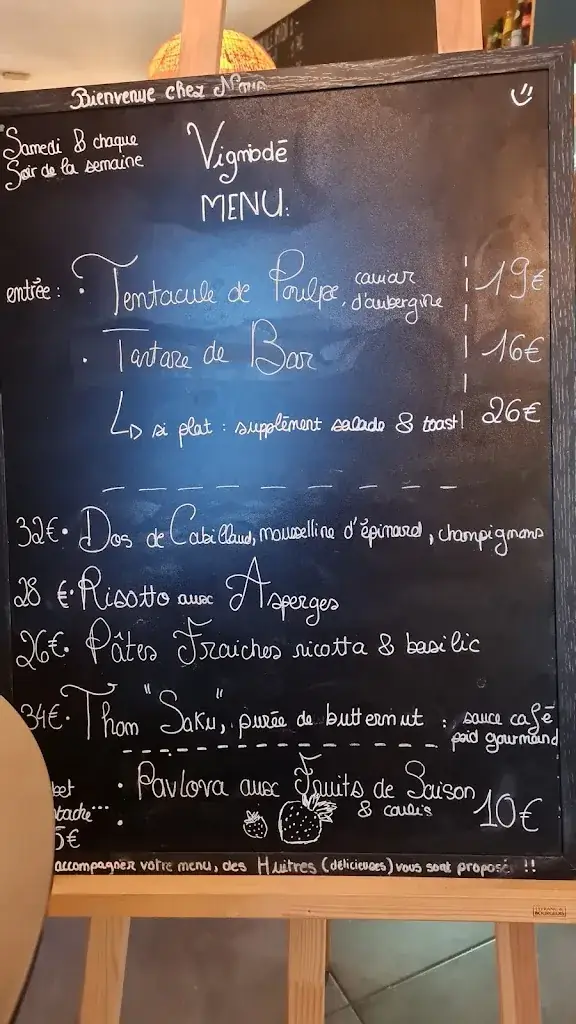 Bienvenue chez
Samedi & chaque
Soir de la semaine
Vignobdē
MENU:
entrée : • Tentacule de Poulpe, caviar d'aubergine 19€
• Tartare de Bar 16€
↳ si plat : supplément salade & toast! 26€
32€ • Dos de Cabillaud, mousselline d'épinard, champignons
28 € • Risotto aux Asperges
26€ • Pâtes Fraiches ricotta & basilic
34€ • Thon "Saku", purée de butternut : sauce café
poid gourmand
• Pavlova aux Fruits de Saison
& coulis 10€
5€
accompagner votre menu, des Huîtres (délicieuses) vous sont proposé !!